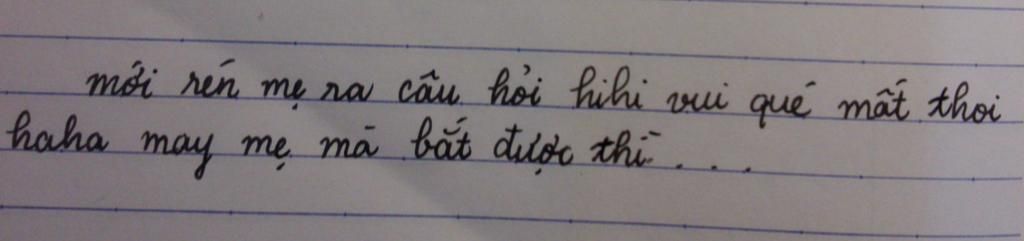 mới rén mẹ ra câu hỏi hihi vui qué mất thoi
haha may mẹ mà bắt được thì . . .